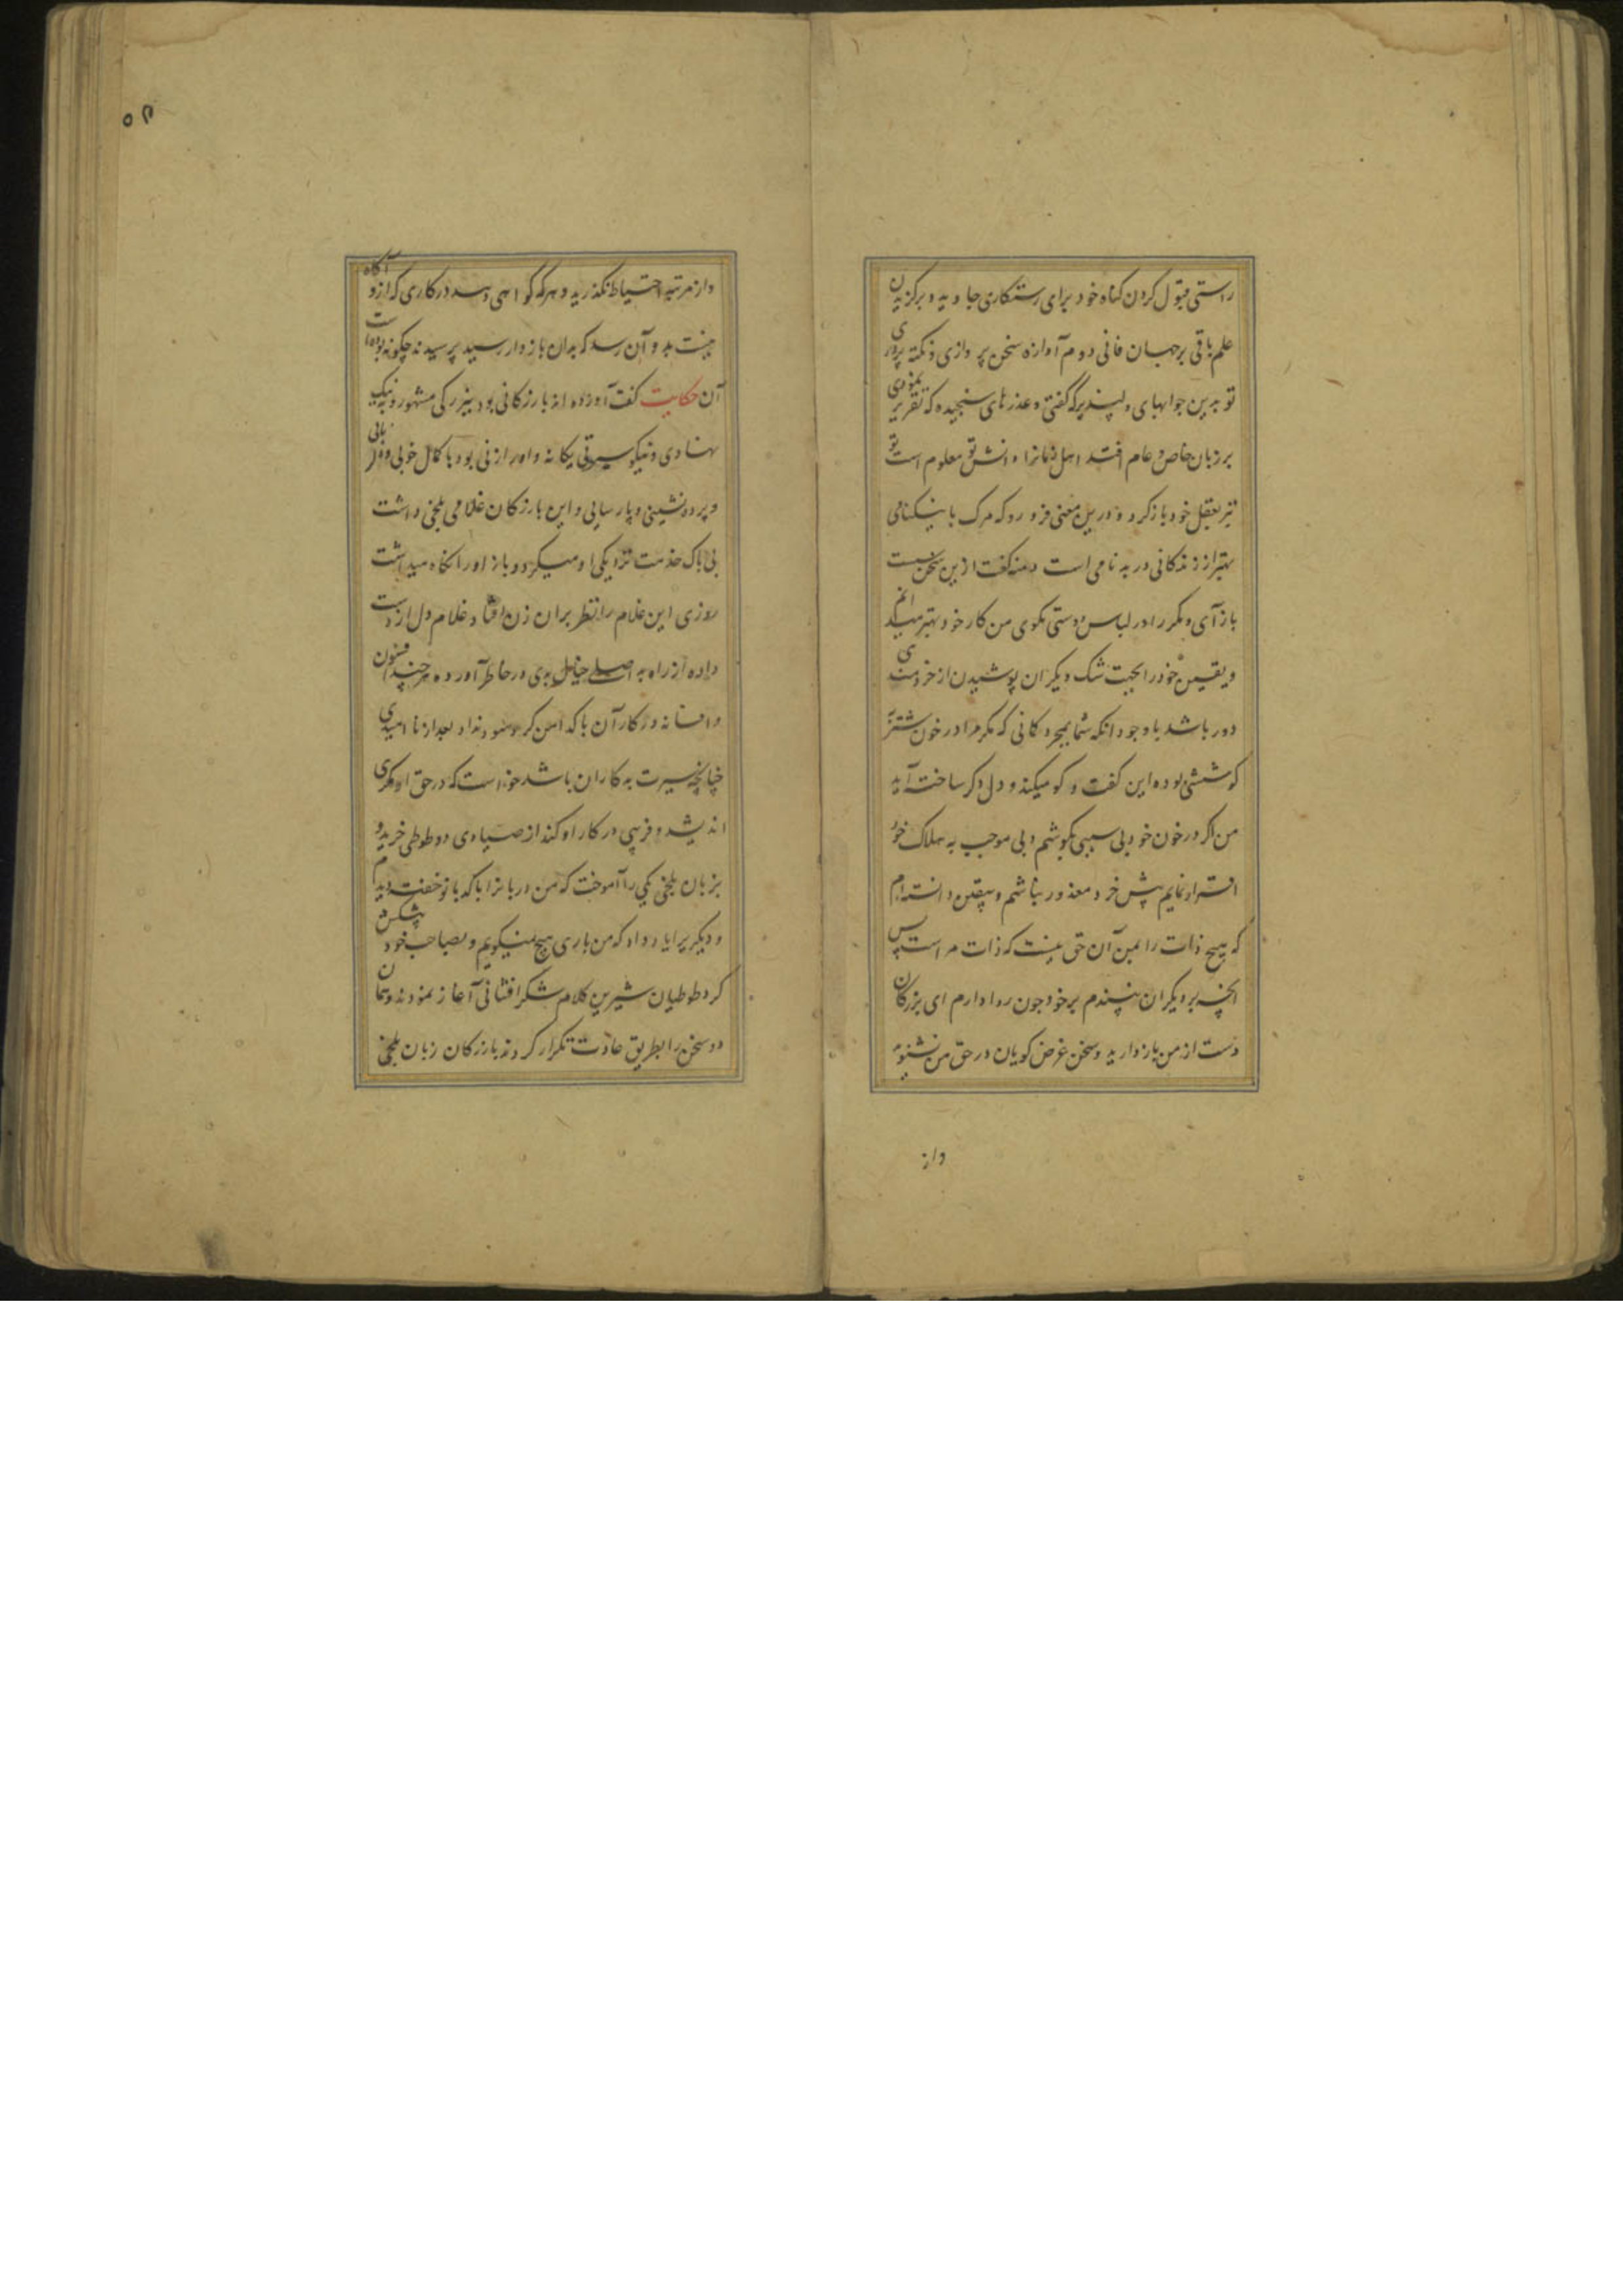 راستی قبول کردن کناه خود برای رستکاری جاوید و برکزیدن
علم باقی برجهان فانی دوم آوازه سخن پردازی و نکته پروری
تو بدین جوابهای دلپذیر که گفتی و عذرهای سنجیده که تقریر نمودی
بر زبان خاص و عام افتد اهل زمانرا دانش تو معلوم است تو
نیز بعقل خود باز کرد و درین معنی فرو رو که مرک با نیکنامی
بهتر از زندکانی در بدنامی است دمنه گفت ازین سخن
باز آی و مکر را در لباس دوستی مکوی من کار خود بهتر میدانم
و یقین خود را بجهت شک دیکران پوشیدن از خردمندی
دور باشد با وجود انکه شما بمجرد کمانی که مکر مرا در خون شنزبه
کوششی بوده این گفت و کو میکنند و دل دکر ساخته آید
من اکر در خون خود بی سببی بکوشم و بی موجب به هلاک خود
نمایم پیش خرد معذور نباشم و بیقین دانسته‌ام
که هیچ ذات را بمن آن حق نیست که ذات مراست پس
انچه بر دیکران نپسندم بر خود چون روا دارم ای بزرکان
دست از من باز دارید و سخن غرض کویان در حق من نشنوید
واز
۵۲
واز مرتبه احتیاط نکذرید و هر که گواهی دهد در کاری که ازو آکاه
نیست بدو آن رسد که بدان بازدار رسید پرسیدند چکونه بوده است
آن حکایت گفت آورده اند بازرکانی بود ببزرکی مشهور و به نیک
نهادی و نیکو سیرتی یکانه و اورا زنی بود با کمال خوبی و
و پرده نشینی و پارسایی و این بازرکان غلامی بلخی داشت
بی باک خدمت نزدیکی او میکرد و باز اورا نکاه میداشت
روزی این غلام را نظر بران زن افتاد غلام دل از دست
داده از راه بد اصلی خیال بدی در خاطر آورده هر چند افسون
و افسانه در کار آن پاکدامن کرد سود نداد بعد از نا امیدی
چنانچه سیرت بدکاران باشد خواست که در حق او مکری
اندیشد و فریبی در کار او کند از صیادی دو طوطی خرید و
بزبان بلخی یکی را آموخت که من دربانرا با کدبانو خفته دیدم
و دیکر یرا یاد داد که من باری هیچ نمیکویم و بصاحب خود پیشکش
کرد طوطیان شیرین کلام شکر افشانی آغاز نمودند و همان
دو سخن را بطریق عادت تکرار کردند بازرکان زبان بلخی